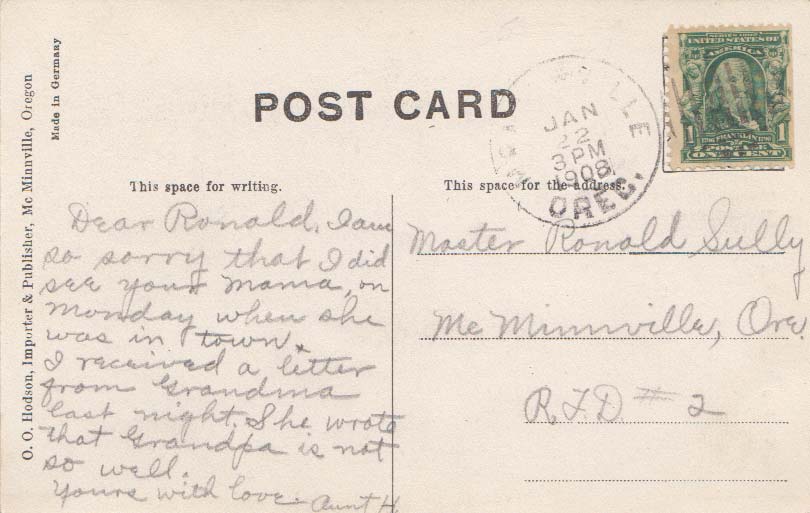 SERIES 1902
UNITED STATES OF
AMERICA
FRANKLIN
1 1
POSTAGE
ONE CENT
VILLE
JAN
22
3 PM
1908
OREG.
POST CARD
O. O. Hodson, Importer & Publisher, Mc Minnville, Oregon
Made in Germany
This space for writing.
Dear Ronald, I am
so sorry that I did
see your Mama, on
Monday when she
was in town.
I received a letter
from Grandma
last night. She wrote
that Grandpa is not
so well.
Yours with love. Aunt H.
This space for the address.
Master Ronald Sully
Mc Minnville, Ore.
R.F.D. # 2